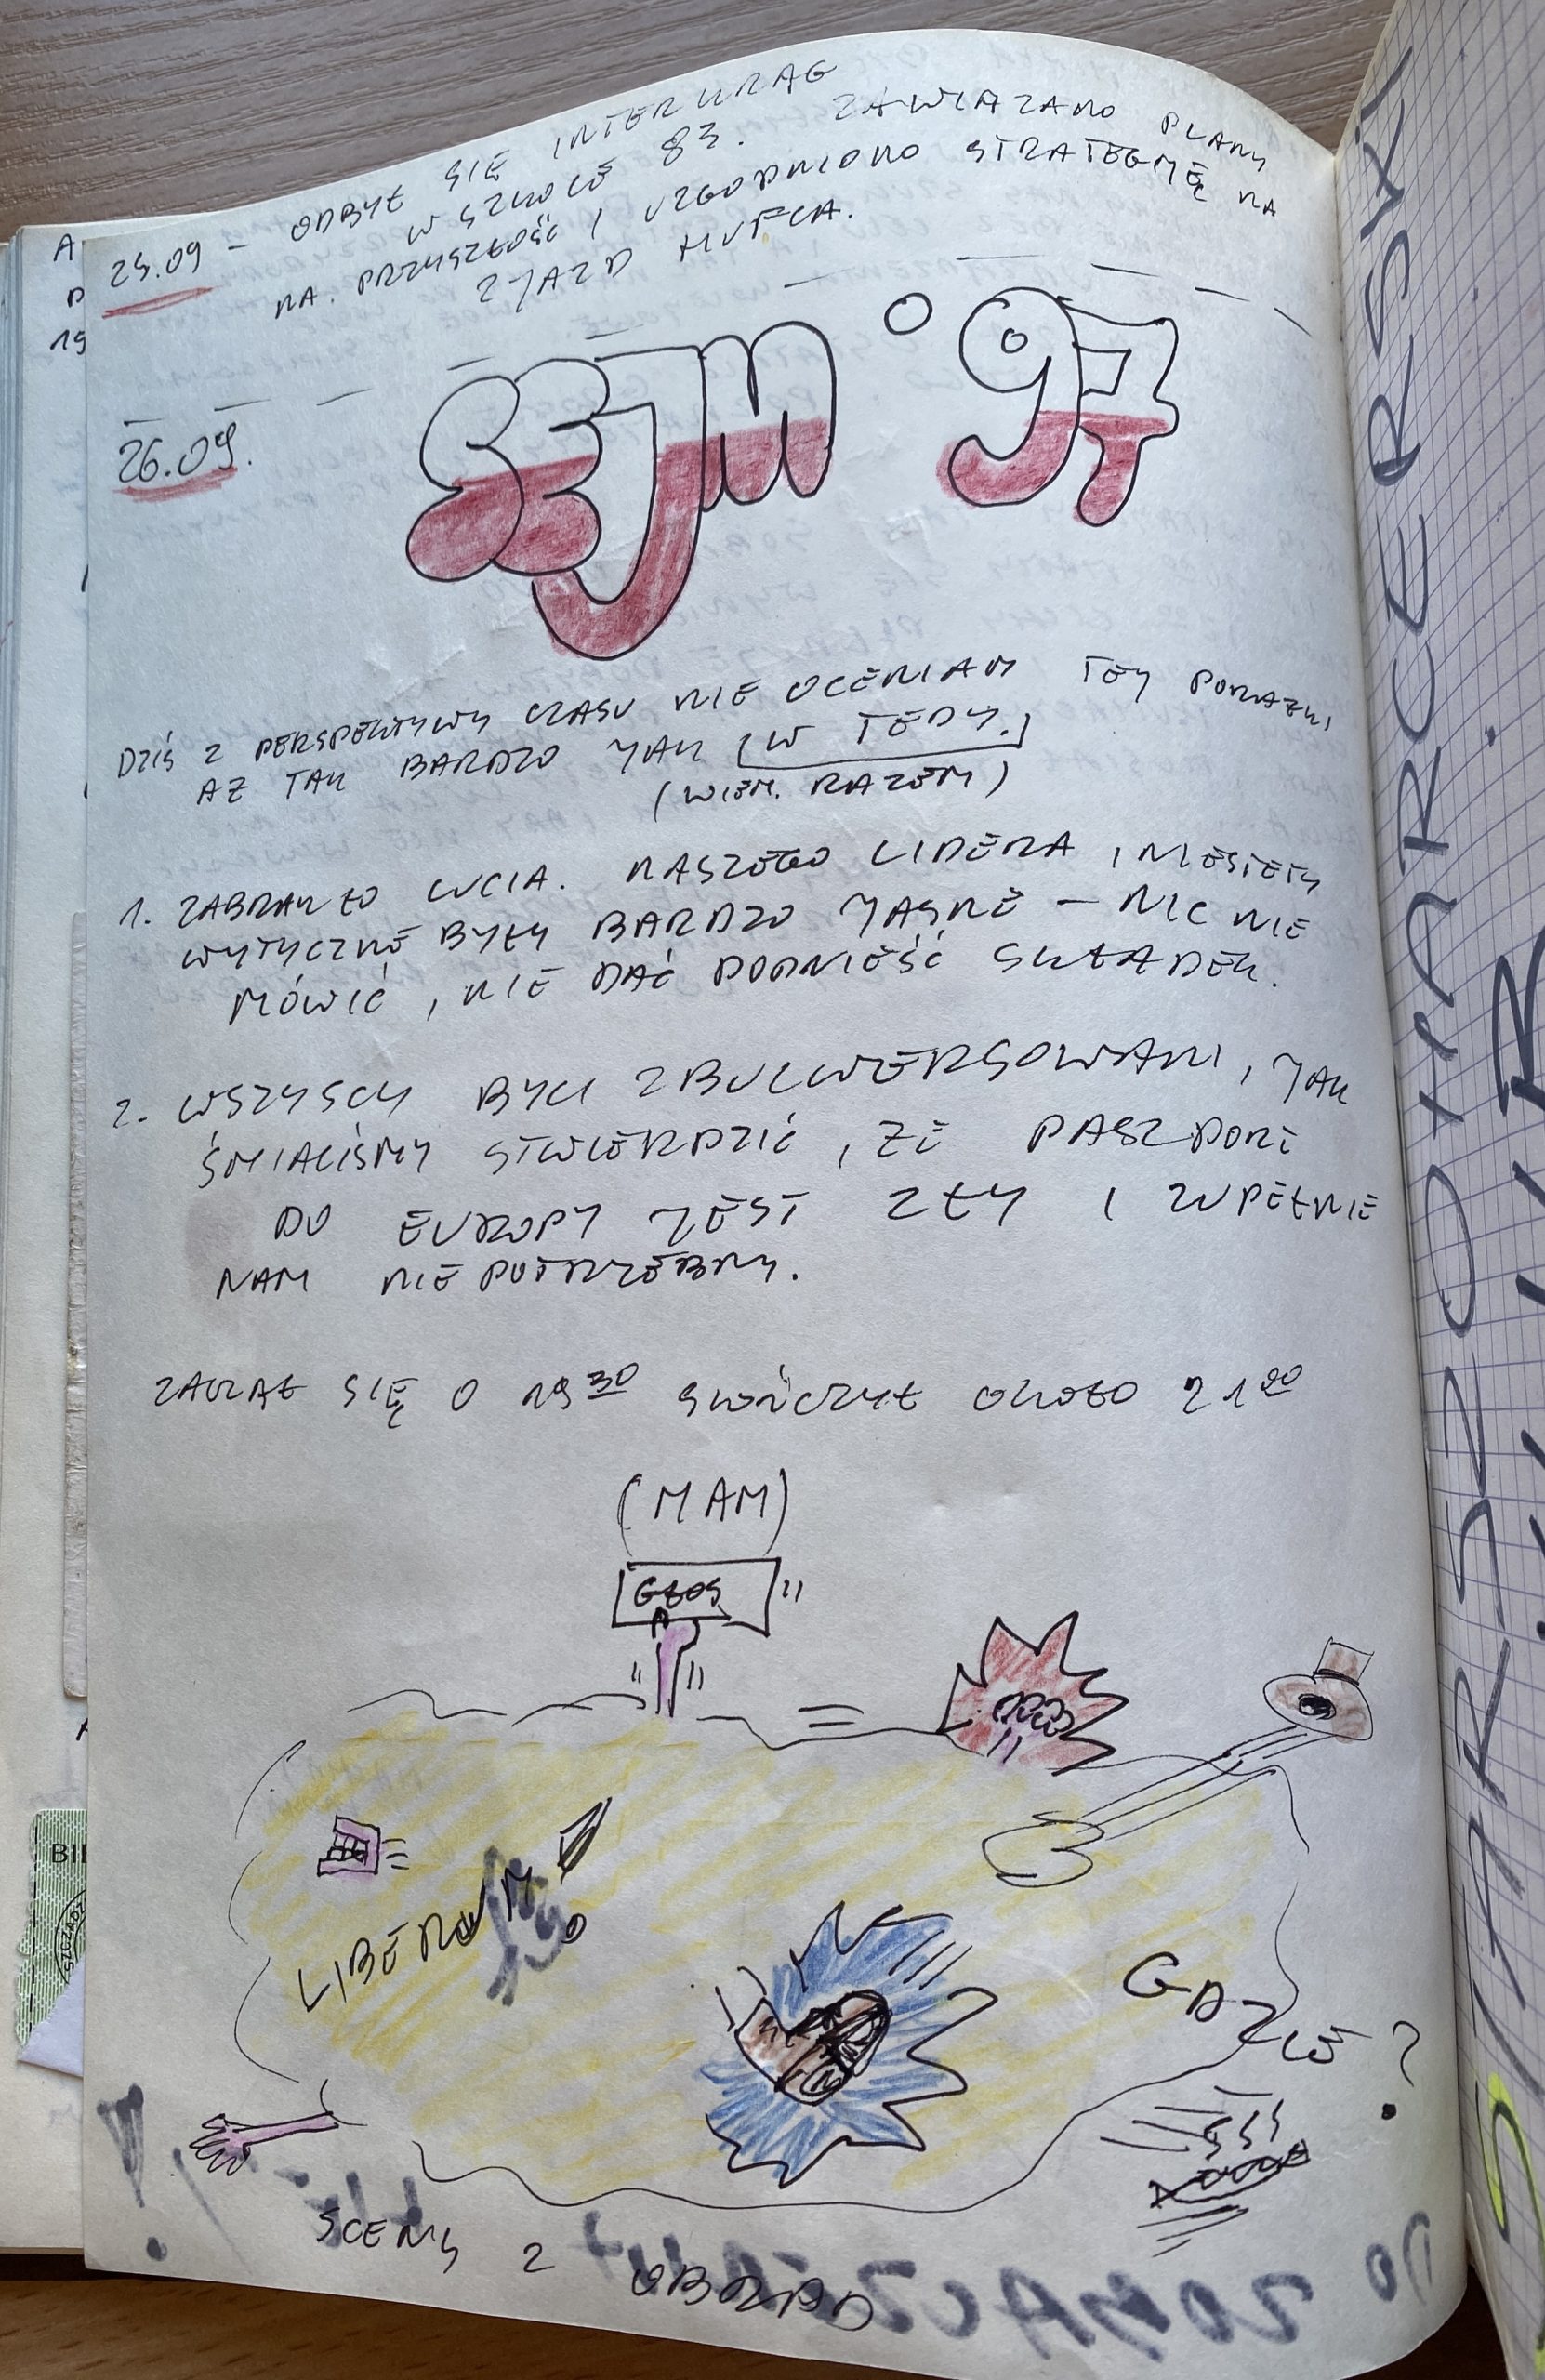 25.09 – ODBYŁ SIĘ INTERKRĄG
W SZKOLE 83. ZAWIĄZANO PLANY
NA PRZYSZŁOŚĆ I UZGODNIONO STRATEGIĘ NA
ZJAZD HUFCA.
SEJM '97
26.09.
DZIŚ Z PERSPEKTYWY CZASU NIE OCENIAM TEJ PORAŻKI
AŻ TAK BARDZO JAK W TEDY.
(WIEM. RAZEM)
1. ZABRAKŁO LUCIA. NASZEGO LIDERA, NIESTETY
WYTYCZNE BYŁY BARDZO JASNE – NIC NIE
MÓWIĆ, NIE DAĆ PODNIEŚĆ SKŁADEK.
2. WSZYSCY BYLI ZBULWERSOWANI, JAK
ŚMIALIŚMY STWIERDZIĆ, ŻE PASZPORT
DO EUROPY JEST ZŁY I ZUPEŁNIE
NAM NIE POTRZEBNY.
ZACZĄŁ SIĘ O 19 30 SKOŃCZYŁ OKOŁO 21 00
(MAM)
GŁOS
LIBERUM
GDZIE?
SCENY Z
OBRAD
STARSZOHARCERSKI
A
19
BIL